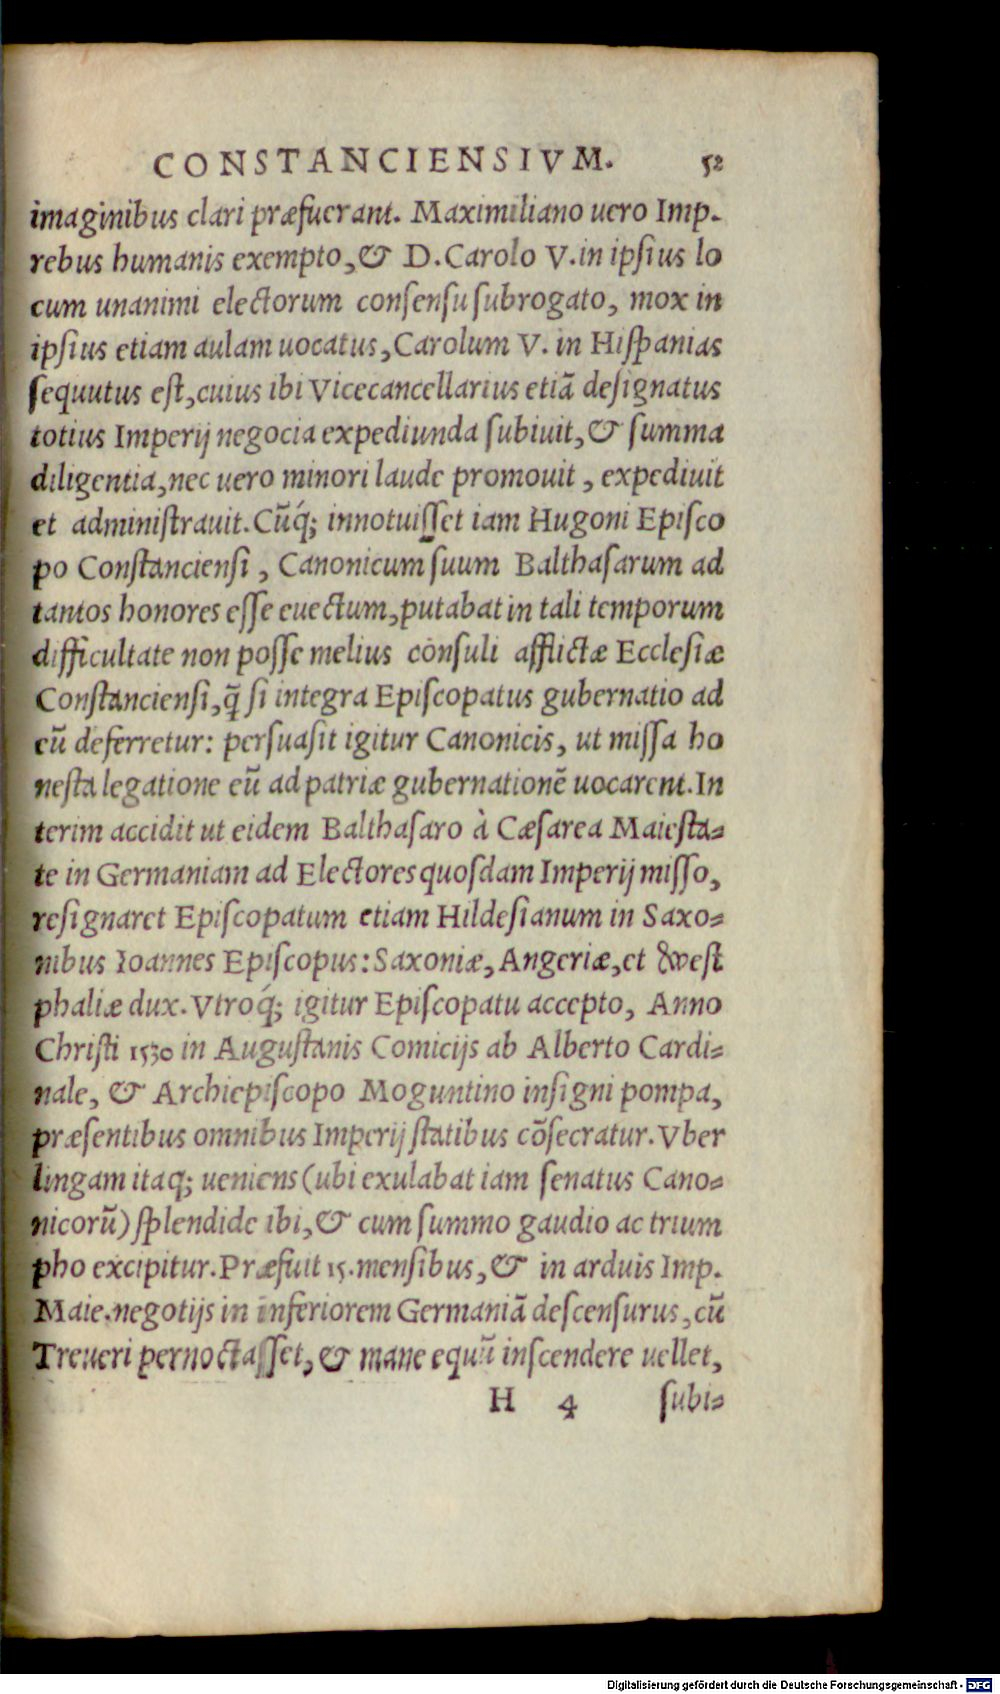 CONSTANCIENSIVM. 52
imaginibus clari præfuerant. Maximiliano uero Imp.
rebus humanis exempto, & D. Carolo V. in ipsius lo
cum unanimi electorum consensu subrogato, mox in
ipsius etiam aulam uocatus, Carolum V. in Hispanias
sequutus est, cuius ibi Vicecancellarius etiā designatus
totius Imperij negocia expediunda subiuit, & summa
diligentia, nec uero minori laude promouit, expediuit
et administrauit. Cūq́; innotuisset iam Hugoni Episco
po Constanciensi, Canonicum suum Balthasarum ad
tantos honores esse euectum, putabat in tali temporum
difficultate non posse melius consuli afflictæ Ecclesiæ
Constanciensi, q̃ si integra Episcopatus gubernatio ad
eū deferretur: persuasit igitur Canonicis, ut missa ho
nesta legatione eū ad patriæ gubernationē uocarent. In
terim accidit ut eidem Balthasaro à Cæsarea Maiesta=
te in Germaniam ad Electores quosdam Imperij misso,
resignaret Episcopatum etiam Hildesianum in Saxo=
nibus Ioannes Episcopus: Saxoniæ, Angeriæ, et West
phaliæ dux. Vtroq́; igitur Episcopatu accepto, Anno
Christi 1530 in Augustanis Comicijs ab Alberto Cardi=
nale, & Archiepiscopo Moguntino insigni pompa,
præsentibus omnibus Imperij statibus cōsecratur. Vber
lingam itaq; ueniens (ubi exulabat iam senatus Cano=
nicorū) splendide ibi, & cum summo gaudio ac trium
pho excipitur. Præfuit 15. mensibus, & in arduis Imp.
Maie. negotijs in inferiorem Germaniā descensurus, cū
Treueri pernoctasset, & mane equū inscendere uellet,
H 4 subi=
Digitalisierung gefördert durch die Deutsche Forschungsgemeinschaft - DFG